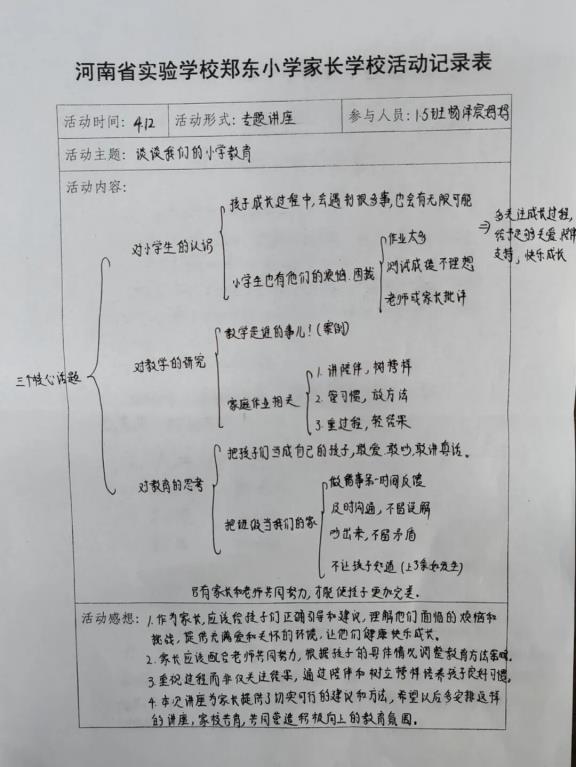 河南省实验学校郑东小学家长学校活动记录表
活动时间: 4.12 活动形式: 专题讲座 参与人员: 1.5班 杨泽宸妈妈
活动主题: 谈谈我们的小学教育
活动内容:
孩子成长过程中,会遇到很多事,也会有无限可能
对小学生的认识
小学生也有他们的烦恼.困扰
作业太多
测试成绩不理想
老师或家长批评
⇒ 多关注成长过程,
给予足够关爱.陪伴
支持,快乐成长
三个核心话题
教学是谁的事儿!(案例)
对教学的研究
家庭作业相关
1. 讲陪伴,树榜样
2. 管习惯,放方法
3. 重过程,轻结果
把孩子们当成自己的孩子,敢爱.敢吵.敢讲真话。
对教育的思考
把班级当我们的家
做错事第一时间反馈
及时沟通,不留误解
吵出来,不留矛盾
不让孩子知道(上3条如发生)
只有家长和老师共同努力,才能使孩子更加完美.
活动感想: 1.作为家长,应该给孩子们正确引导和建议,理解他们面临的烦恼和
挑战,提供充满爱和关怀的环境,让他们健康快乐成长。
2. 家长应该配合老师共同努力,根据孩子的具体情况调整教育方法策略.
3.重视过程而非仅关注结果,通过陪伴和树立榜样培养孩子良好习惯,
4.本次讲座为家长提供了切实可行的建议和方法,希望以后多安排这样
的讲座,家校共育,共同营造积极向上的教育氛围。